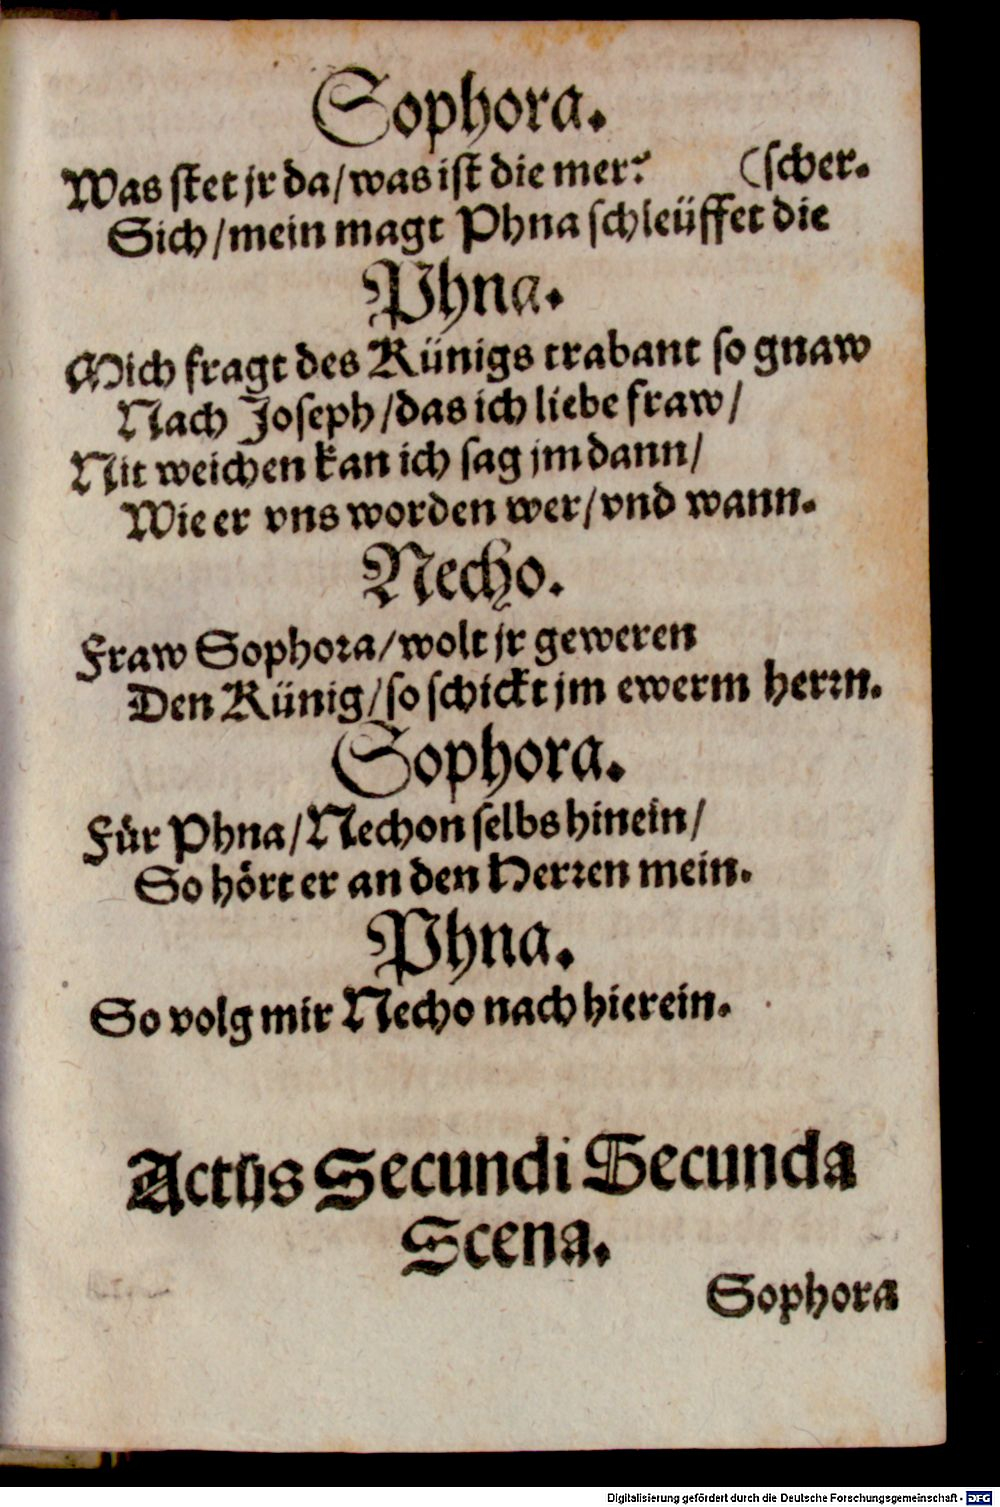 Sophora.
Was stet jr da/was ist die mer? (scher.
Sich/mein magt Phna schleüffet die
Phna.
Mich fragt des Künigs trabant so gnaw
Nach Joseph/das ich liebe fraw/
Nit weichen kan ich sag jm dann/
Wie er vns worden wer/vnd wann.
Necho.
Fraw Sophora/wolt jr geweren
Den Künig/so schickt jm ewerm herrn.
Sophora.
Für Phna/Nechon selbs hinein/
So hört er an den Herren mein.
Phna.
So volg mir Necho nach hierein.
Actus Secundi Secunda
Scena.
Sophora
Digitalisierung gefördert durch die Deutsche Forschungsgemeinschaft - DFG